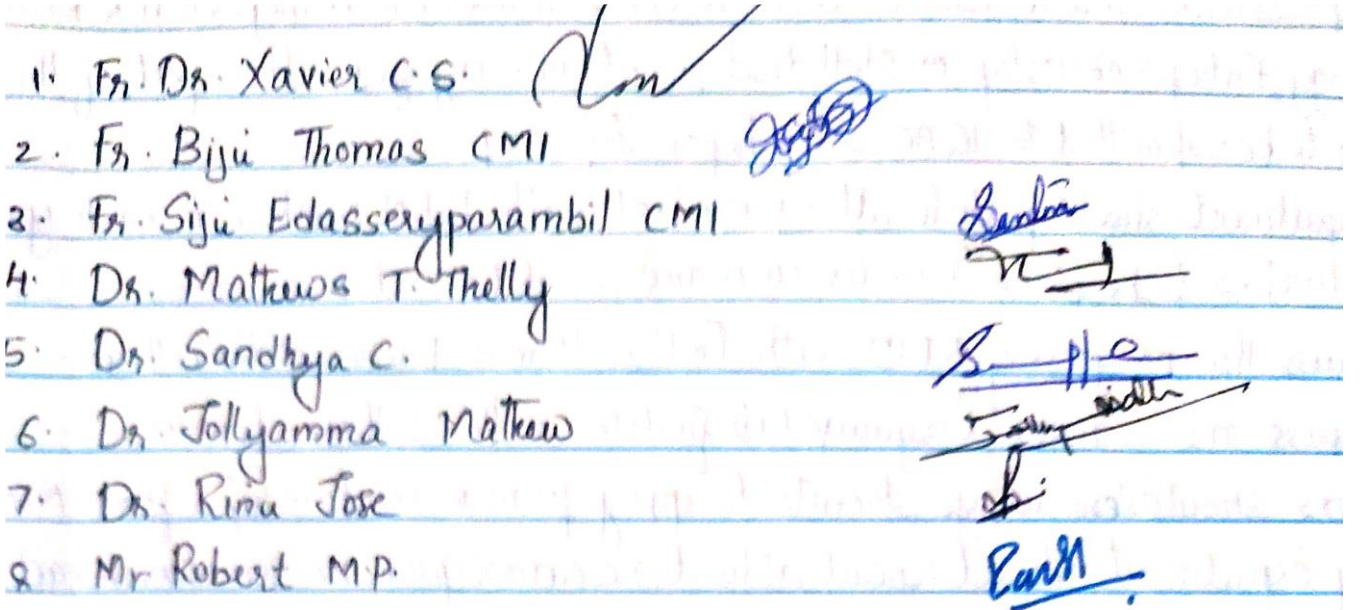 1. Fr. Dr. Xavier C.S.
2. Fr. Biju Thomas CMI
3. Fr. Siju Edasseryparambil CMI
4. Dr. Mathews T. Thelly
5. Dr. Sandhya C.
6. Dr. Jollyamma Mathew
7. Dr. Rinu Jose
8 Mr Robert M.P.